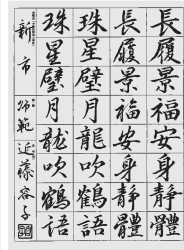 長履景福安身靜體
珠星璧月龍吹鶴語
珠星璧月龍吹鶴語
新市 師範 近藤容子